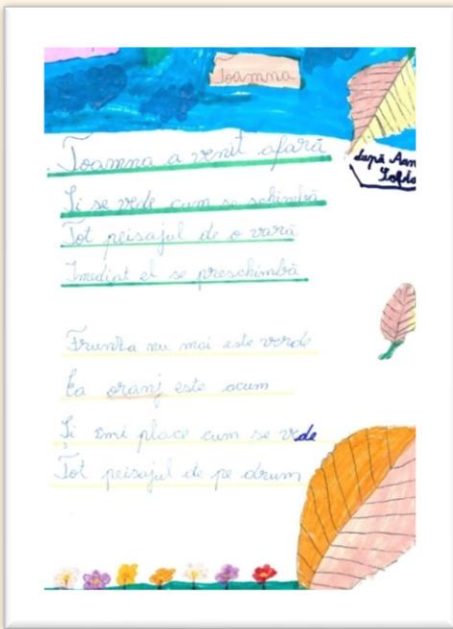 Toamna
Toamna a venit afară
Și se vede cum se schimbă
Tot peisajul de o vară
Imediat el se preschimbă
Frunza nu mai este verde
Ea oranj este acum
Și îmi place cum se vede
Tot peisajul de pe drum
după